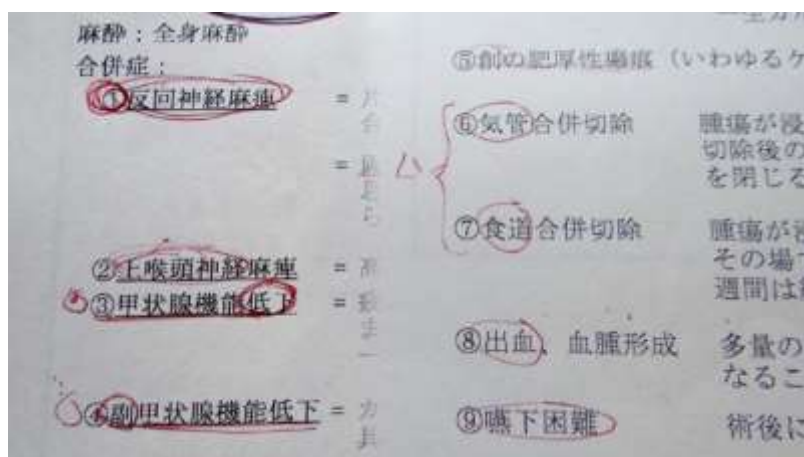 麻酔：全身麻酔
合併症：
①反回神経麻痺 =
=
②上喉頭神経麻痺 =
③甲状腺機能低下 =
④副甲状腺機能低下 = カ
⑤創の肥厚性瘢痕（いわゆるケ
⑥気管合併切除 腫瘍が浸
切除後の
を閉じる
⑦食道合併切除 腫瘍が浸
その場
週間は
⑧出血、血腫形成 多量の
なるこ
⑨嚥下困難 術後に